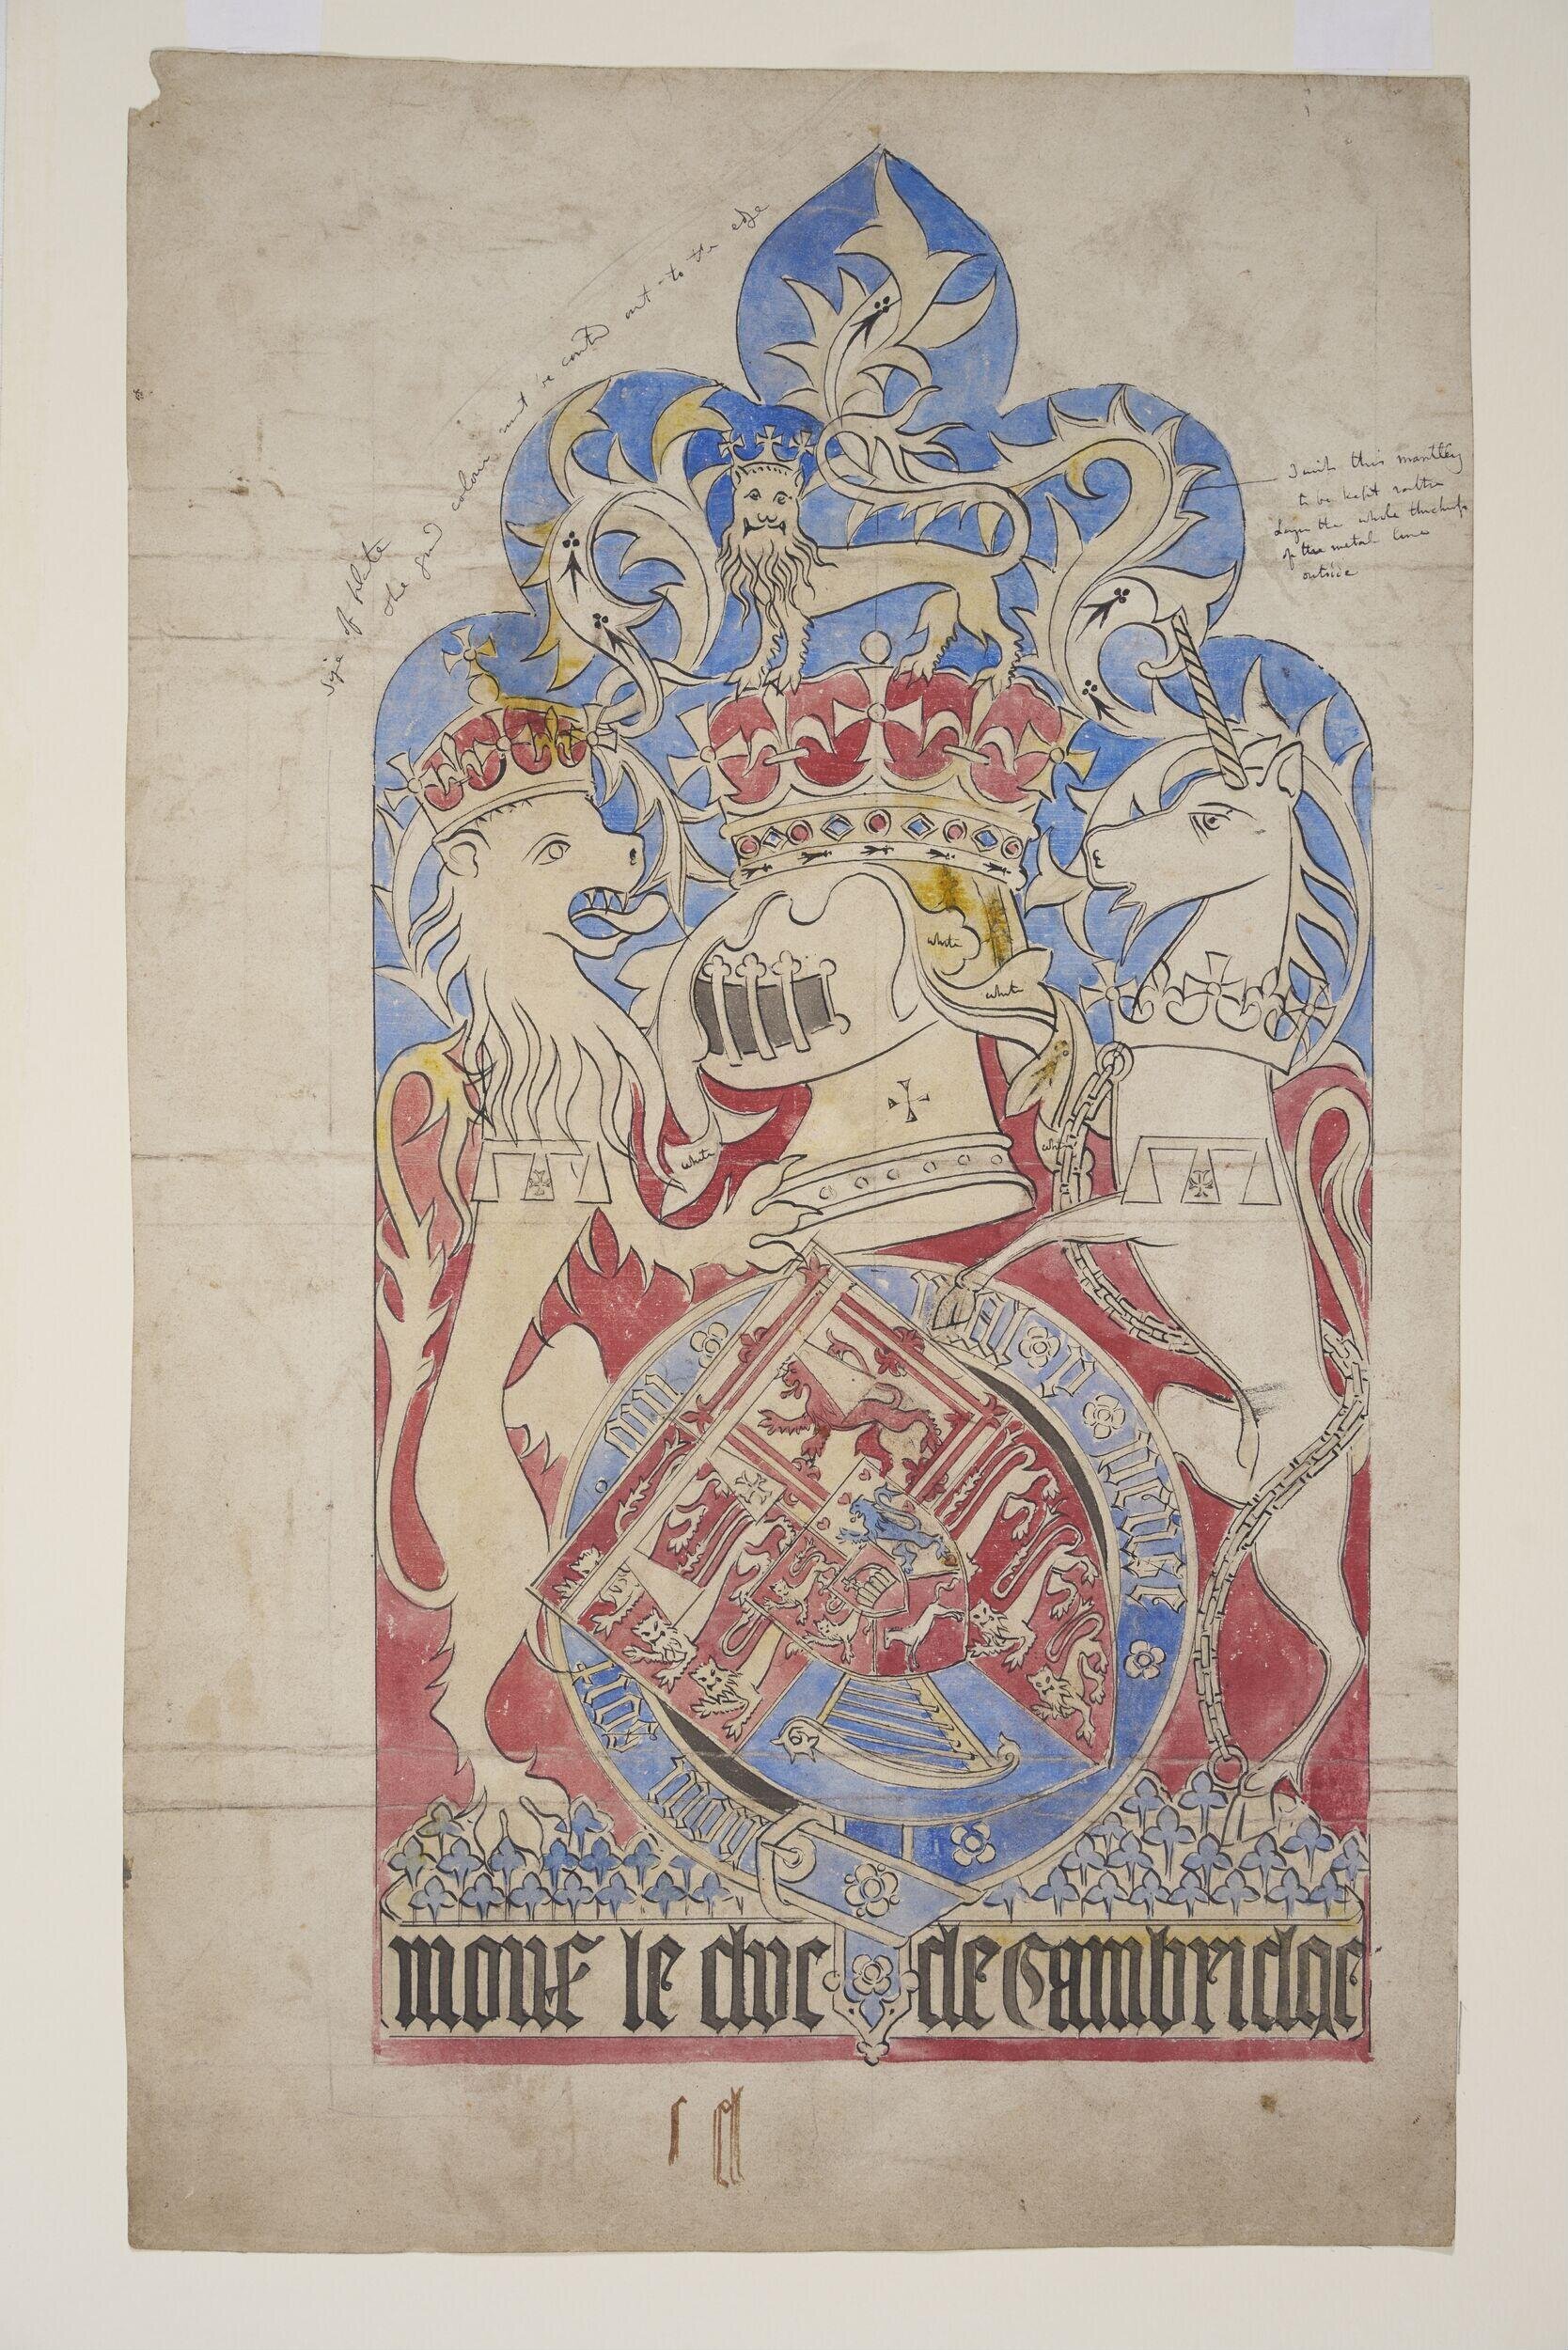 size of plate
the gnd colour must be contd out to the edge
I wish this mantling
to be kept rather
the whole thickness
of the metal line
outside
white
white
white
white
honi soit qui mal y pense
monsr le duc de Cambridge